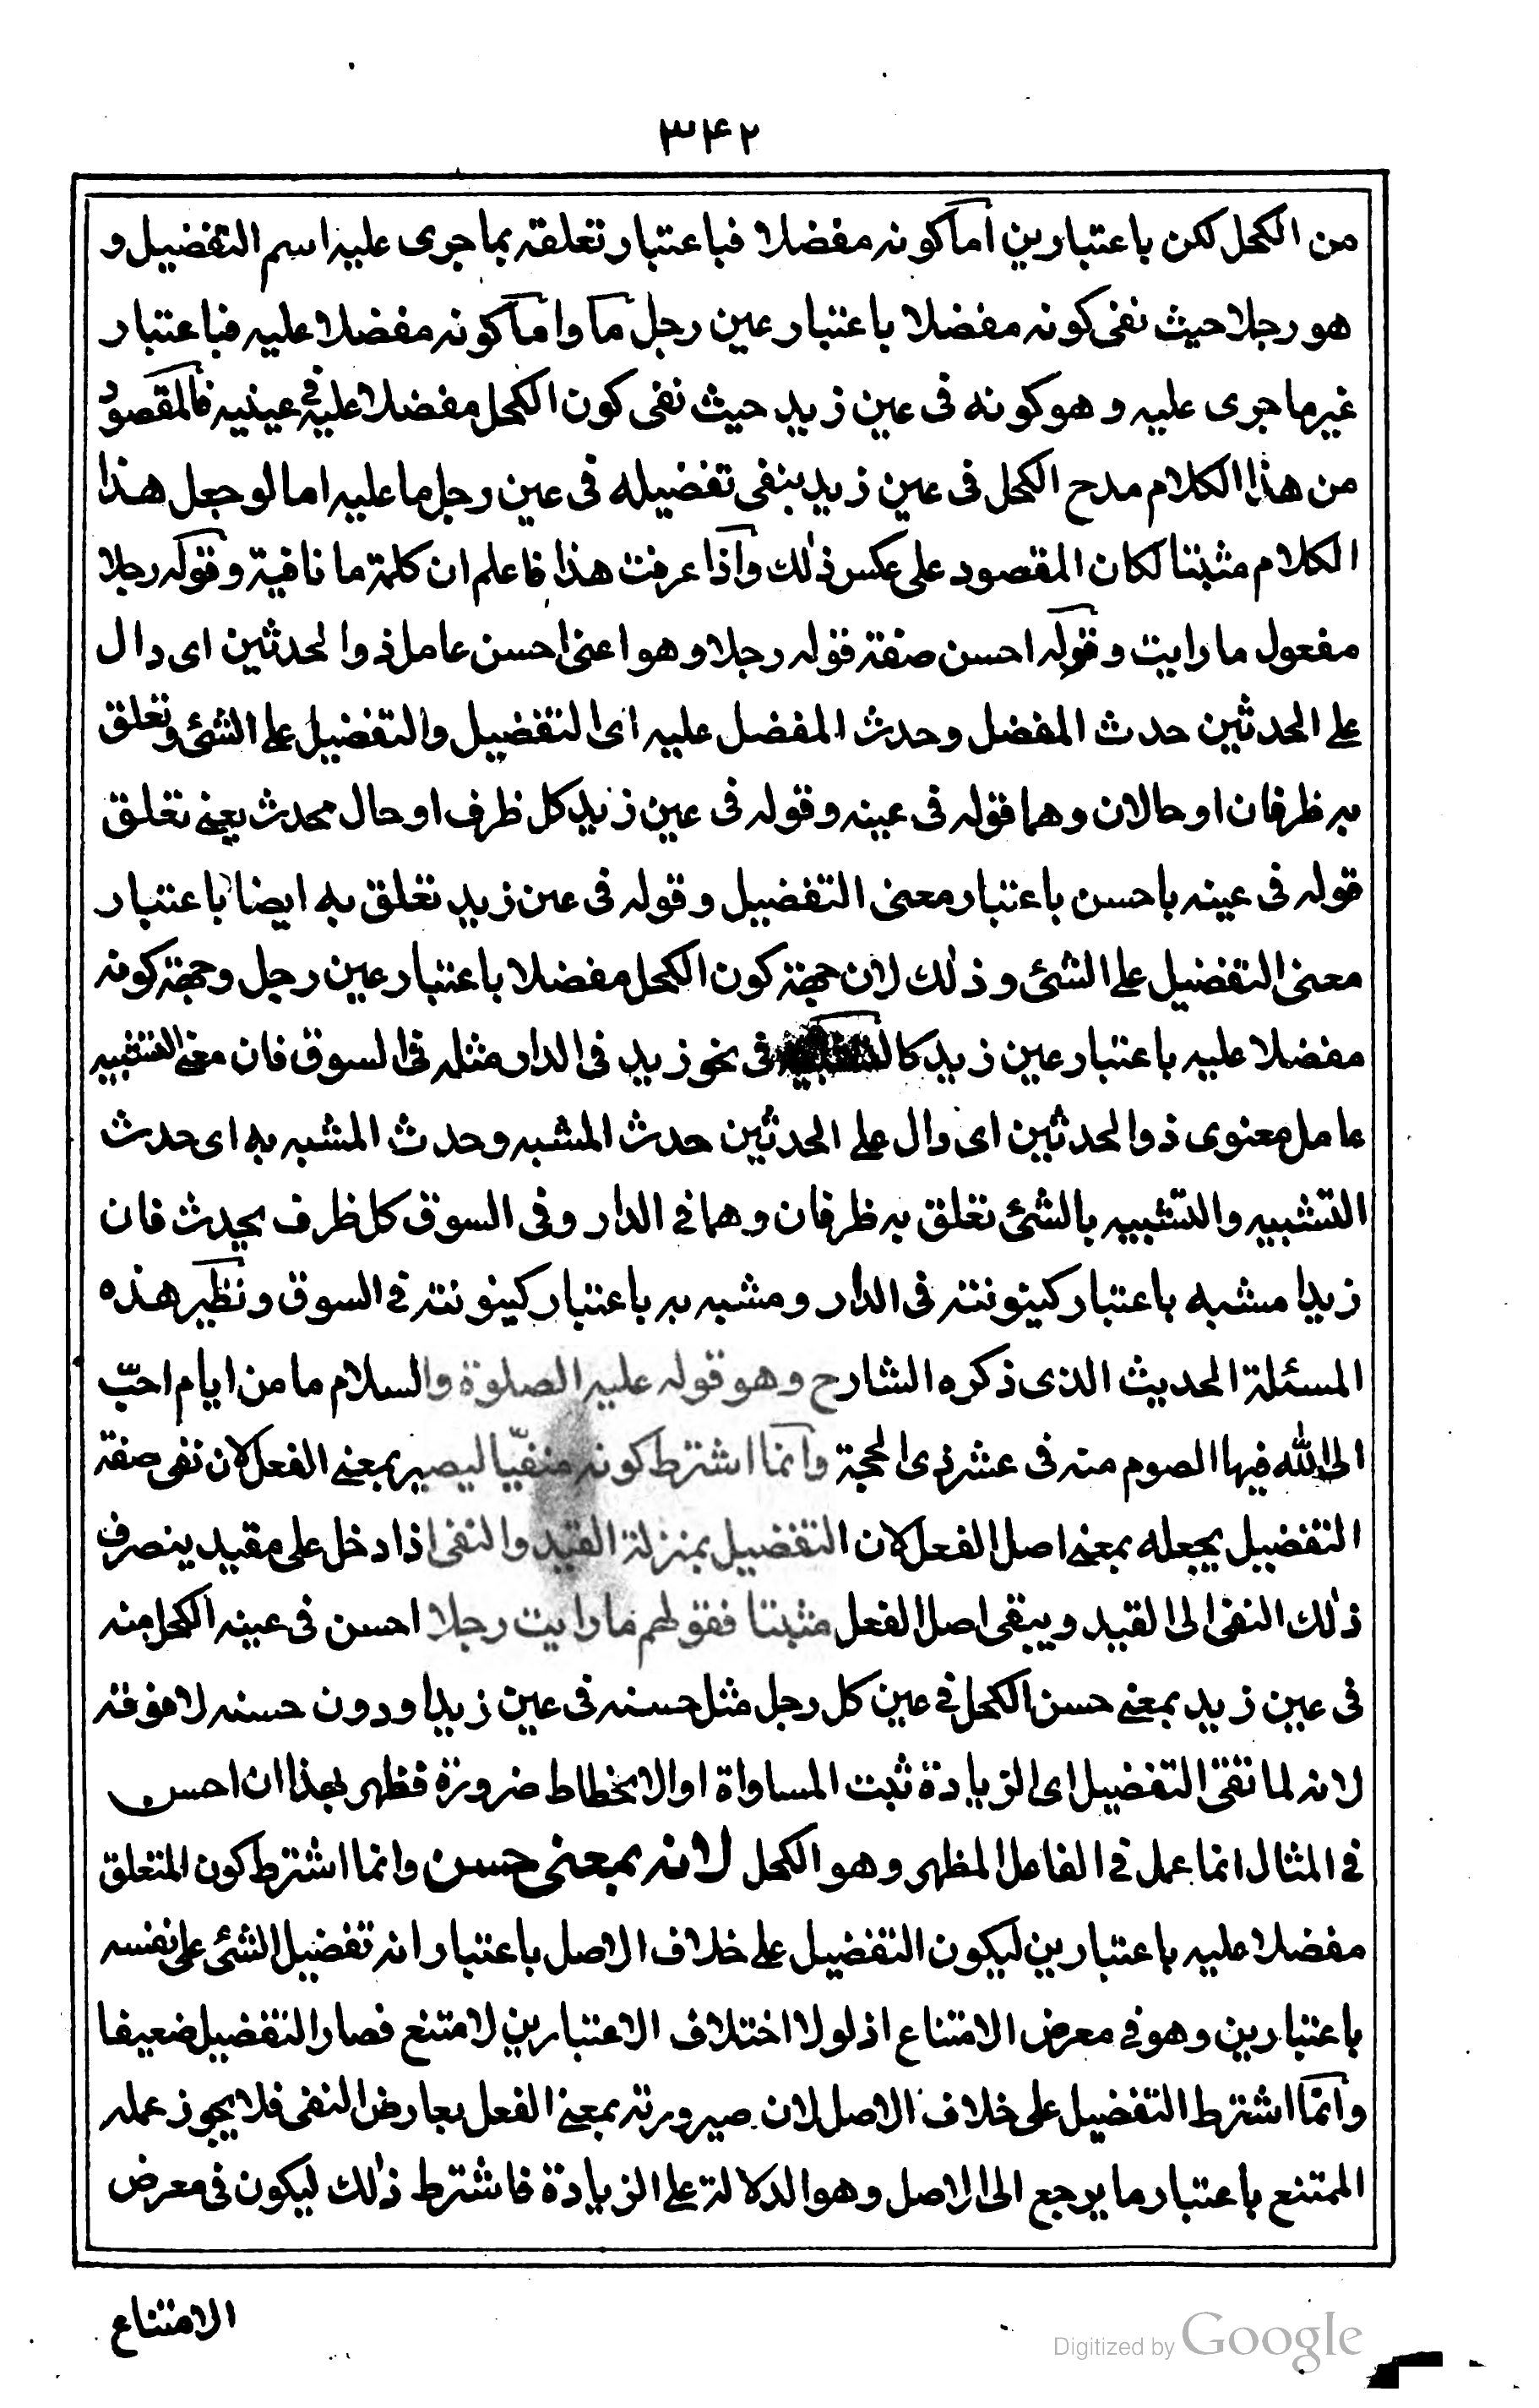 ۳۴۲
من الكحل لكن باعتبارين اما كونه مفضلا فباعتبار تعلقه بما جرى عليه اسم التفضيل و
هو رجلا حيث نفى كونه مفضلا باعتبار عين رجل ما واما كونه مفضلا عليه فباعتبار
غير ما جرى عليه وهو كونه فى عين زيد حيث نفى كون الكحل مفضلا عليه فى عينيه فالمقصود
من هذا الكلام مدح الكحل فى عين زيد بنفى تفضيله فى عين رجل ما عليه اما لو جعل هذا
الكلام مثبتا لكان المقصود على عكس ذلك واذا عرفت هذا فاعلم ان كلمة ما نافية وقوله رجلا
مفعول ما رايت وقوله احسن صفة قوله رجلا وهو اعنى احسن عامل ذو الحدثين اى دال
على الحدثين حدث المفضل وحدث المفضل عليه اى التفضيل والتفضيل على الشئ وتعلق
به ظرفان او حالان وهما قوله فى عينه وقوله فى عين زيد كل ظرف او حال بحدث يعنى تعلق
قوله فى عينه باحسن باعتبار معنى التفضيل وقوله فى عين زيد تعلق به ايضا باعتبار
معنى التفضيل على الشئ وذلك لان جهة كون الكحل مفضلا باعتبار عين رجل وجهة كونه
مفضلا عليه باعتبار عين زيد كالتشبيه فى نحو زيد فى الدار مثله فى السوق فان معنى التشبيه
عامل معنوى ذو الحدثين اى دال على الحدثين حدث المشبه وحدث المشبه به اى حدث
التشبيه والتشبيه بالشئ تعلق به ظرفان وهما فى الدار وفى السوق كل ظرف بحدث فان
زيدا مشبه باعتبار كينونته فى الدار ومشبه به باعتبار كينونته فى السوق ونظير هذه
المسئلة الحديث الذى ذكره الشارح وهو قوله عليه الصلوة والسلام ما من ايام احبّ
الى الله فيها الصوم منه فى عشر ذى الحجة وانما اشترط كونه منفيّا ليصير بمعنى الفعل لان نفى صفة
التفضيل يجعله بمعنى اصل الفعل لان التفضيل بمنزلة القيد والنفى اذا دخل على مقيد ينصرف
ذلك النفى الى القيد ويبقى اصل الفعل مثبتا فقولهم ما رايت رجلا احسن فى عينه الكحل منه
فى عين زيد بمعنى حسن الكحل فى عين كل رجل مثل حسنه فى عين زيد او دون حسنه لا فوقه
لانه لما نفى التفضيل اى الزيادة ثبت المساواة او الانحطاط ضرورة فظهر بهذا ان احسن
فى المثال انما عمل فى الفاعل المظهر وهو الكحل لانه بمعنى حسن وانما اشترط كون المتعلق
مفضلا عليه باعتبارين ليكون التفضيل على خلاف الاصل باعتبار انه تفضيل الشئ على نفسه
باعتبارين وهو فى معرض الامتناع اذ لولا اختلاف الاعتبارين لامتنع فصار التفضيل ضعيفا
وانما اشترط التفضيل على خلاف الاصل لان صيرورته بمعنى الفعل بعارض النفى فلا يجوز عمله
الممتنع باعتبار ما يرجع الى الاصل وهو الدلالة على الزيادة فاشترط ذلك ليكون فى معرض
الامتناع
Digitized by Google